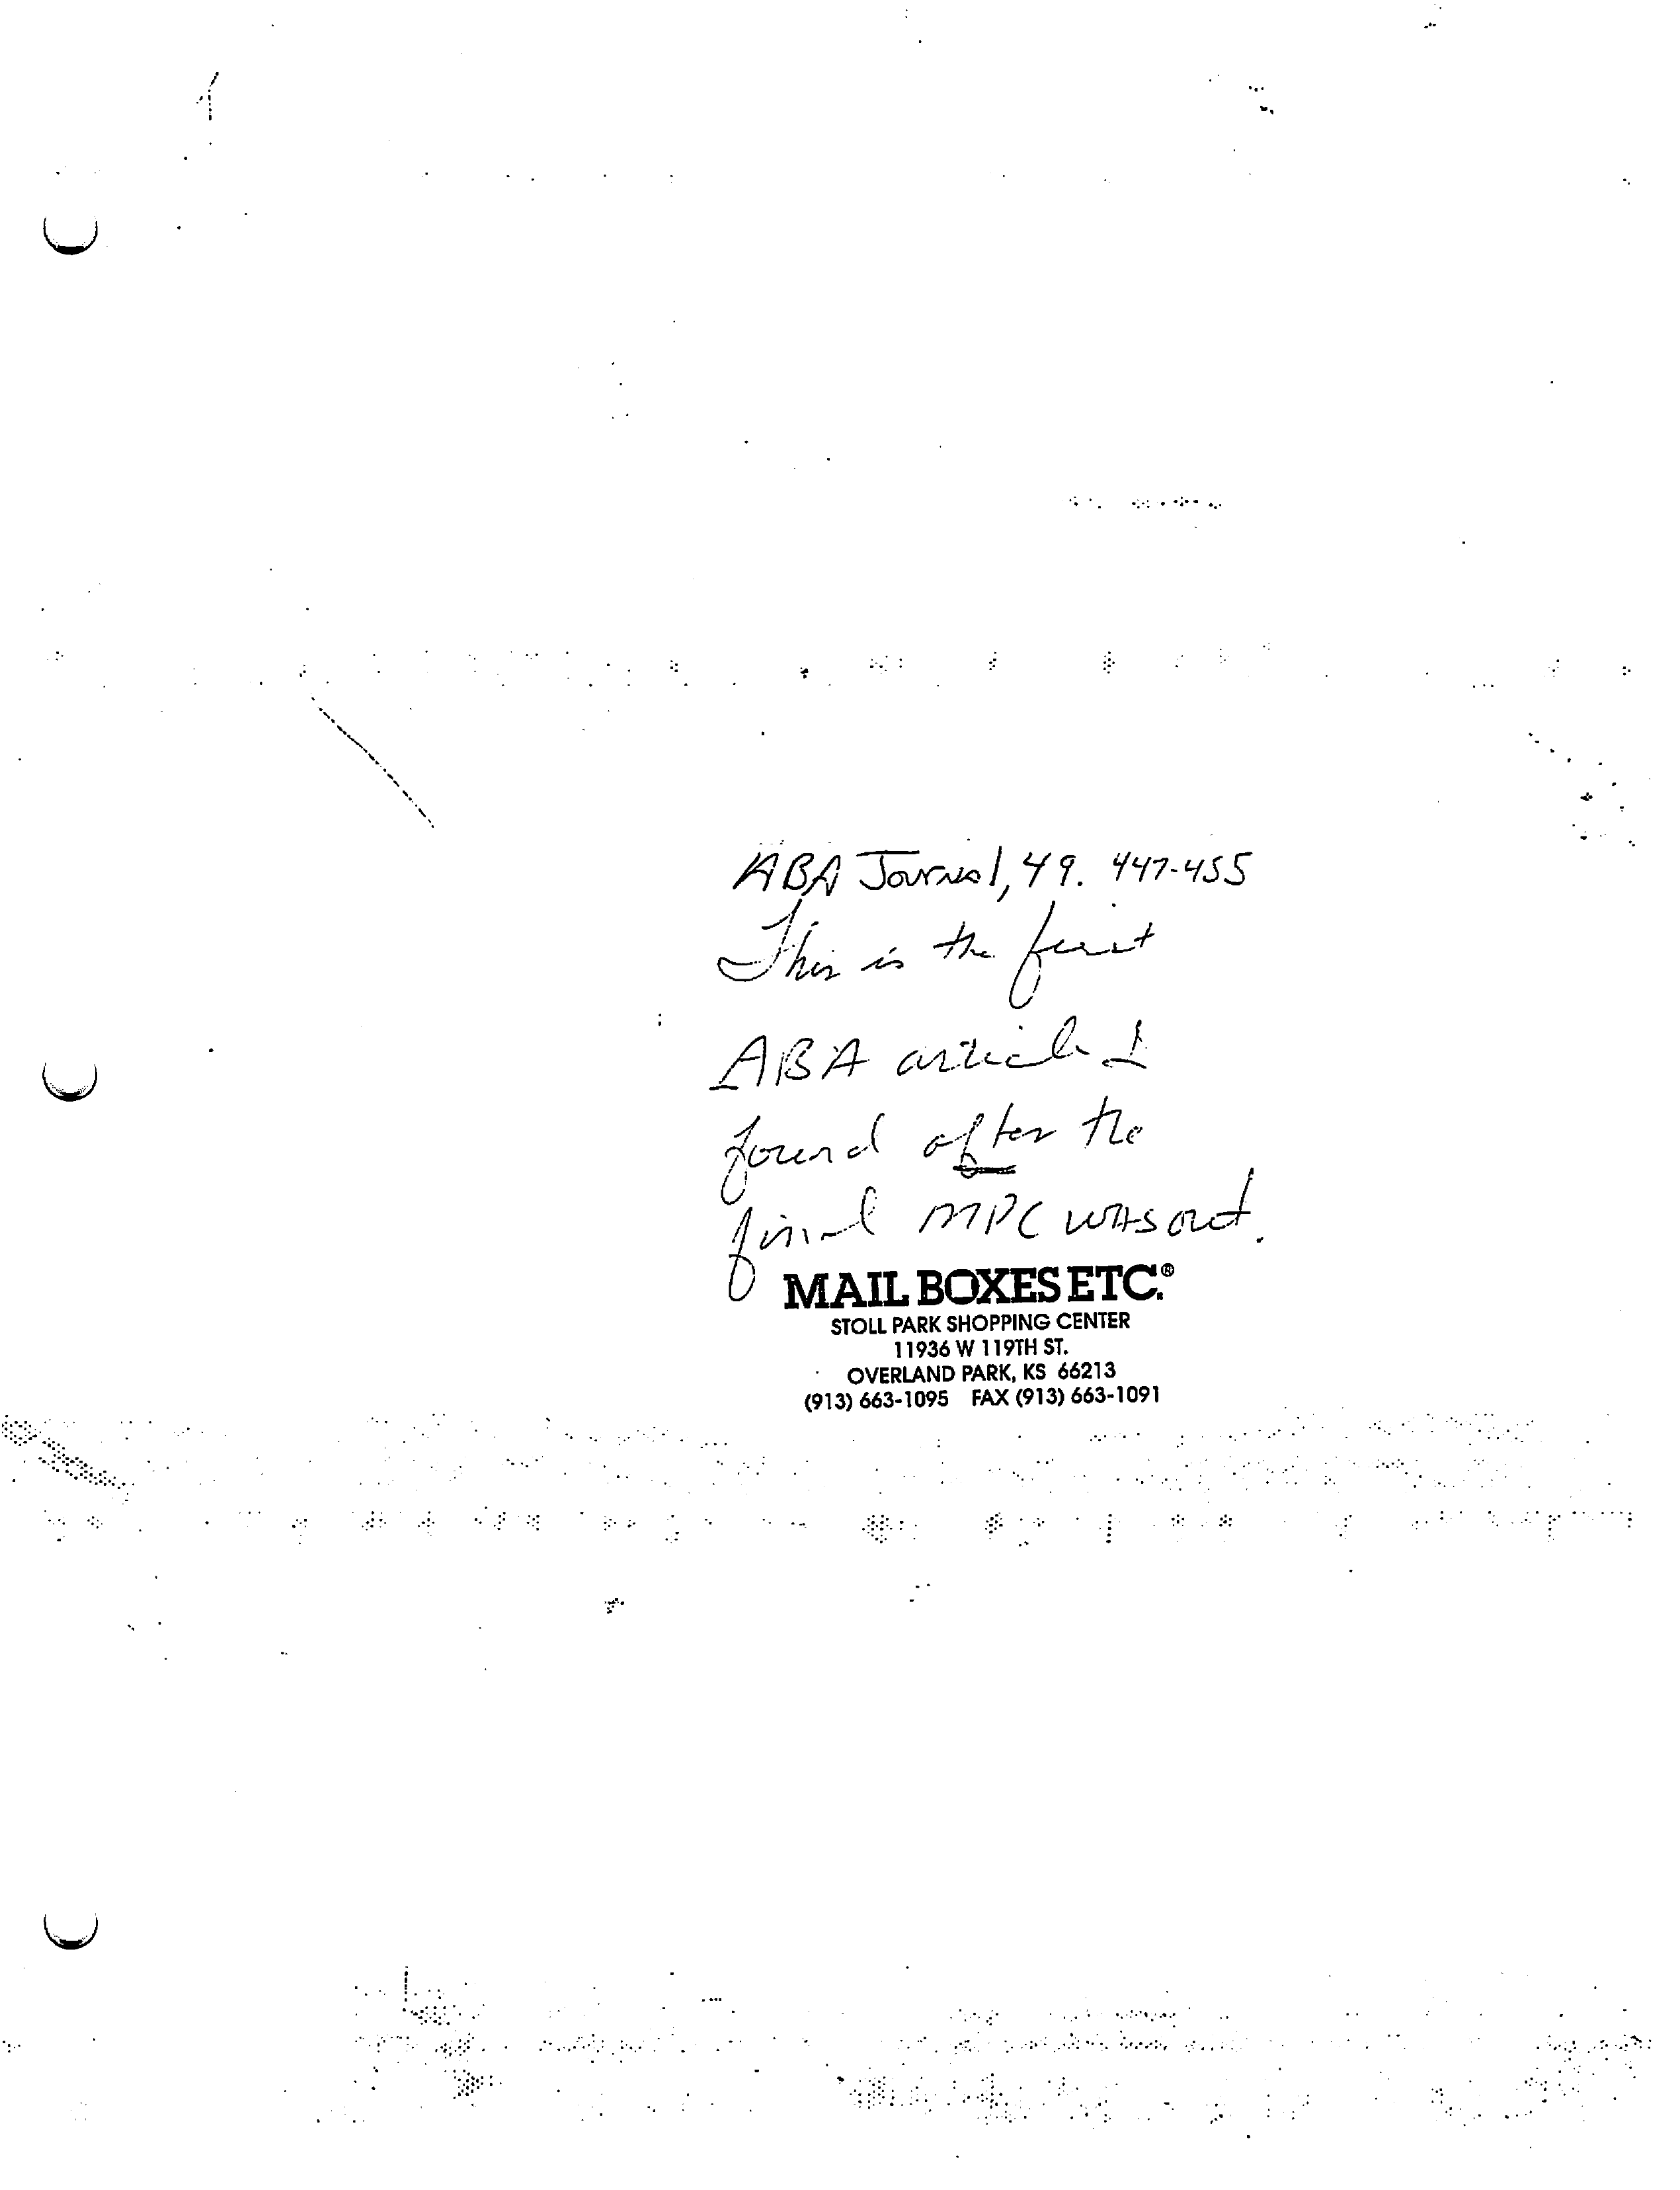 ABA Journal, 49. 447-455
This is the first
ABA article I
found after the
final MPC was out.
MAIL BOXES ETC.®
STOLL PARK SHOPPING CENTER
11936 W 119TH ST.
OVERLAND PARK, KS 66213
(913) 663-1095 FAX (913) 663-1091